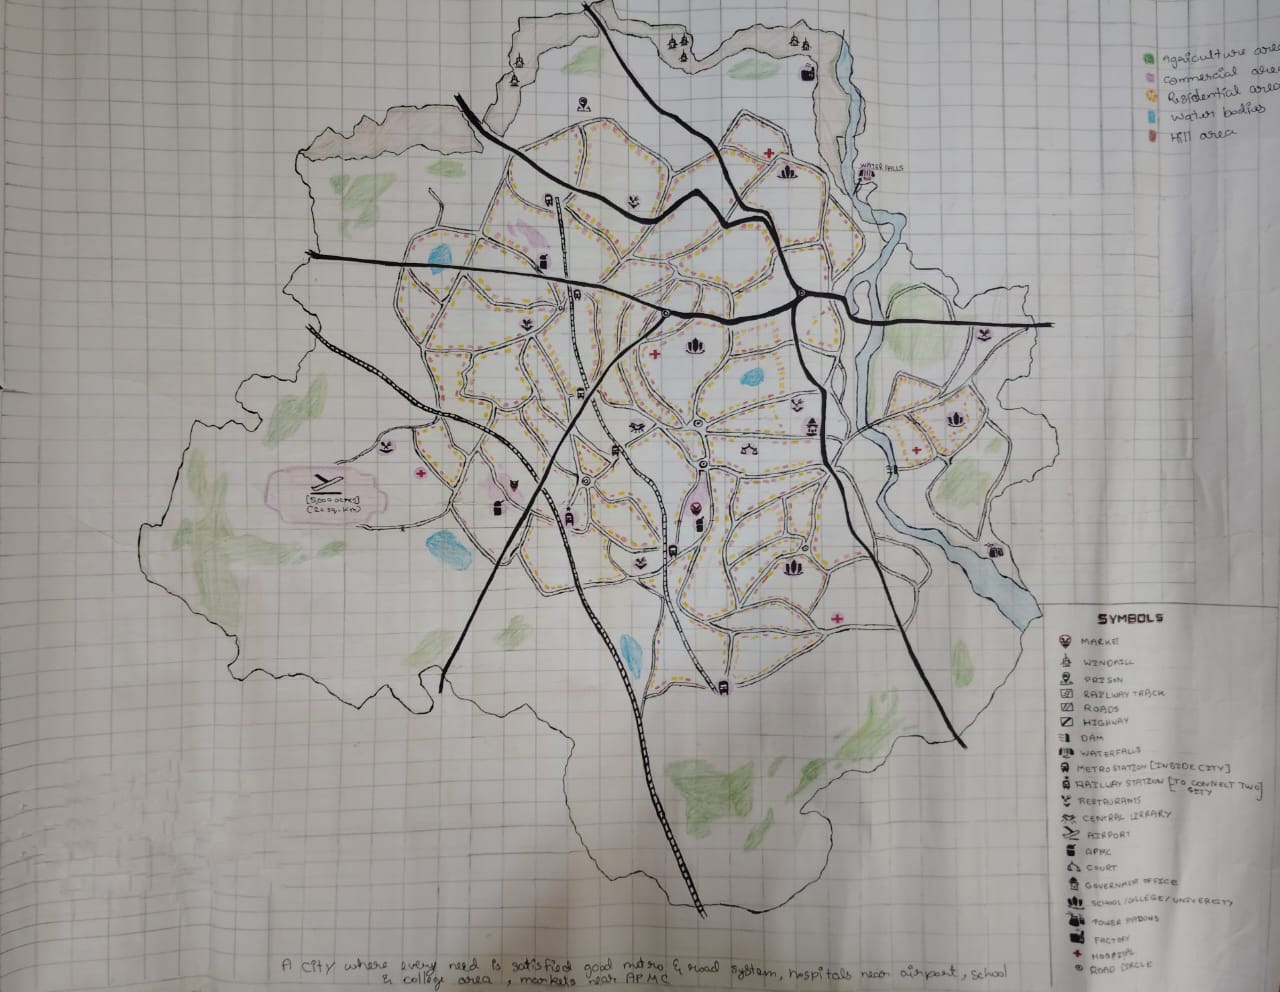 Agriculture area
Commercial area
Residential area
Water bodies
Hill area
WATERFALLS
[5,000 acres]
(20 sq. km)
SYMBOLS
MARKET
WINDMILL
PRISON
RAILWAY TRACK
ROADS
HIGHWAY
DAM
WATERFALLS
METRO STATION [INSIDE CITY]
RAILWAY STATION [TO CONNECT TWO
CITY]
RESTAURANTS
CENTRAL LIBRARY
AIRPORT
APMC
COURT
OFFICE
SCHOOL/COLLEGE/UNIVERCITY
FACTORY
ROAD CIRCLE
A city where every need is satisfied good metro & road system, hospitals near airport, school
& college area, markets near APMC